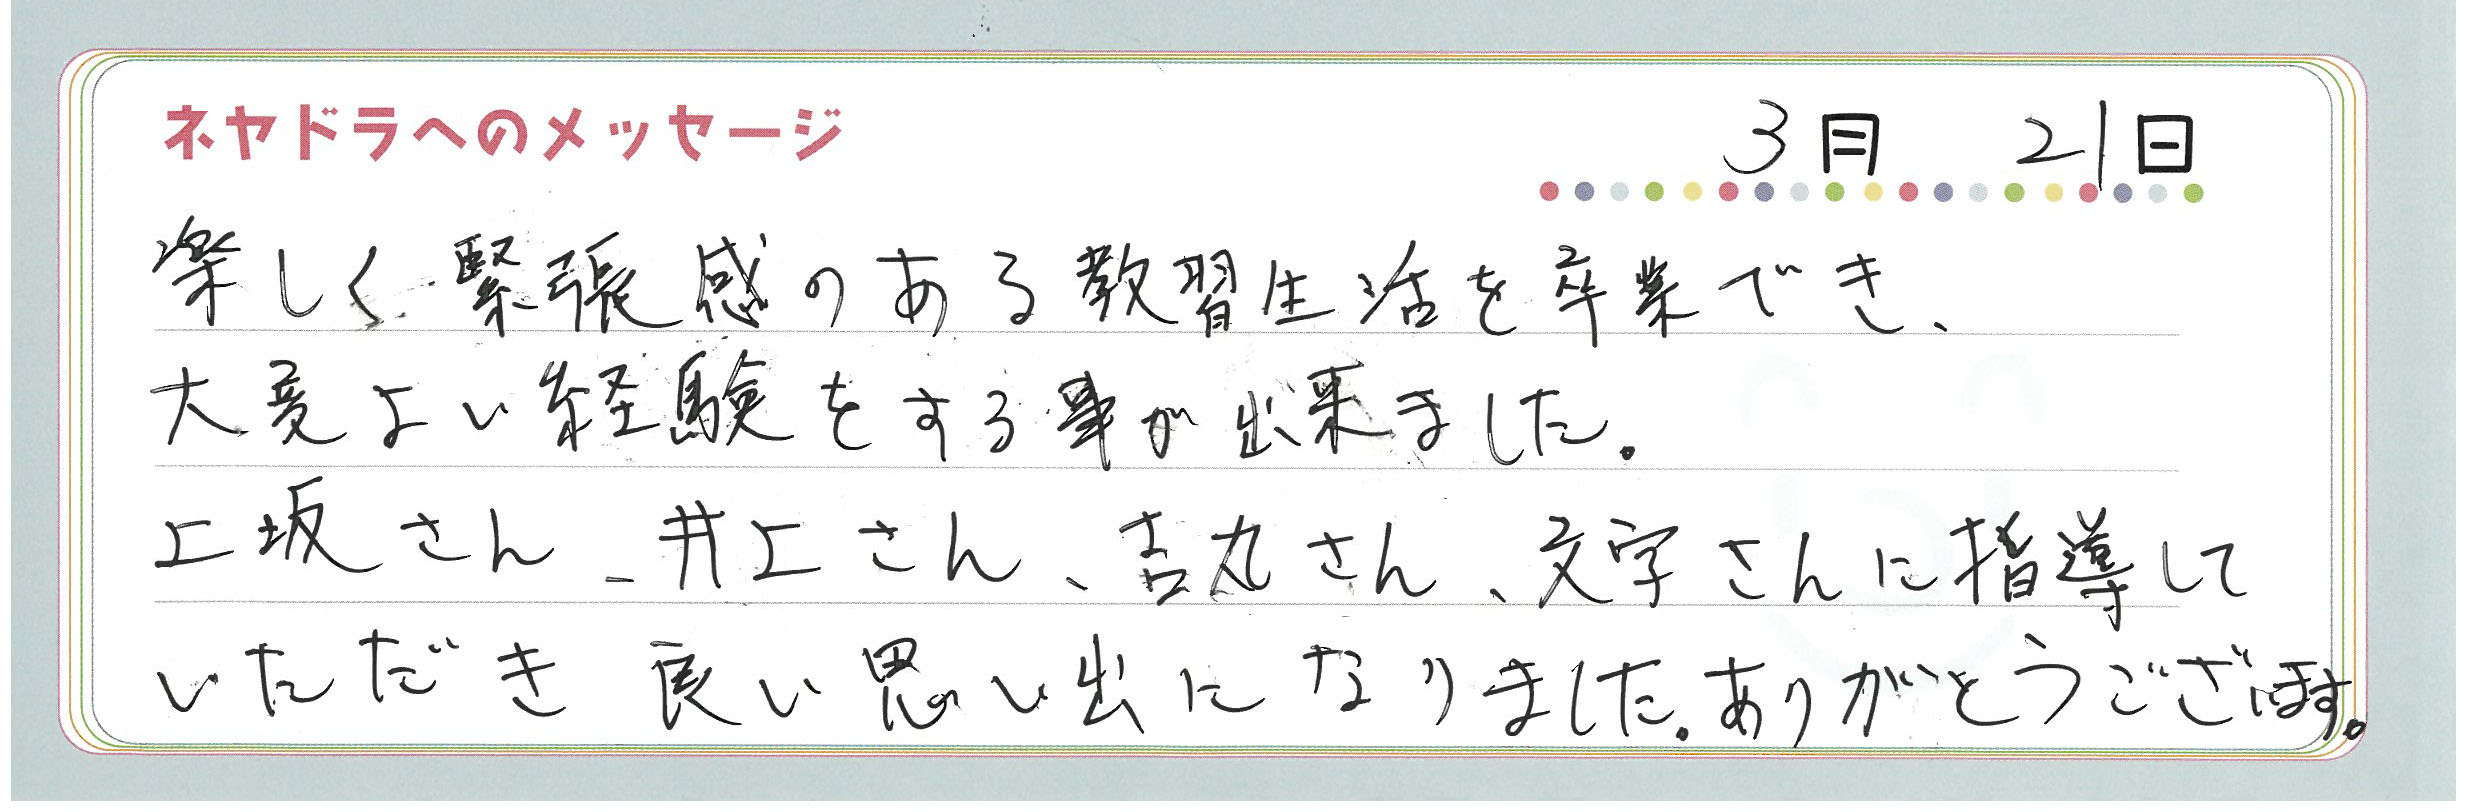 ネヤドラへのメッセージ
3月 21日
楽しく緊張感のある教習生活を卒業でき、
大変よい経験をする事が出来ました。
上坂さん、井上さん、吉丸さん、文字さんに指導して
いただき 良い思い出になりました。ありがとうございます。